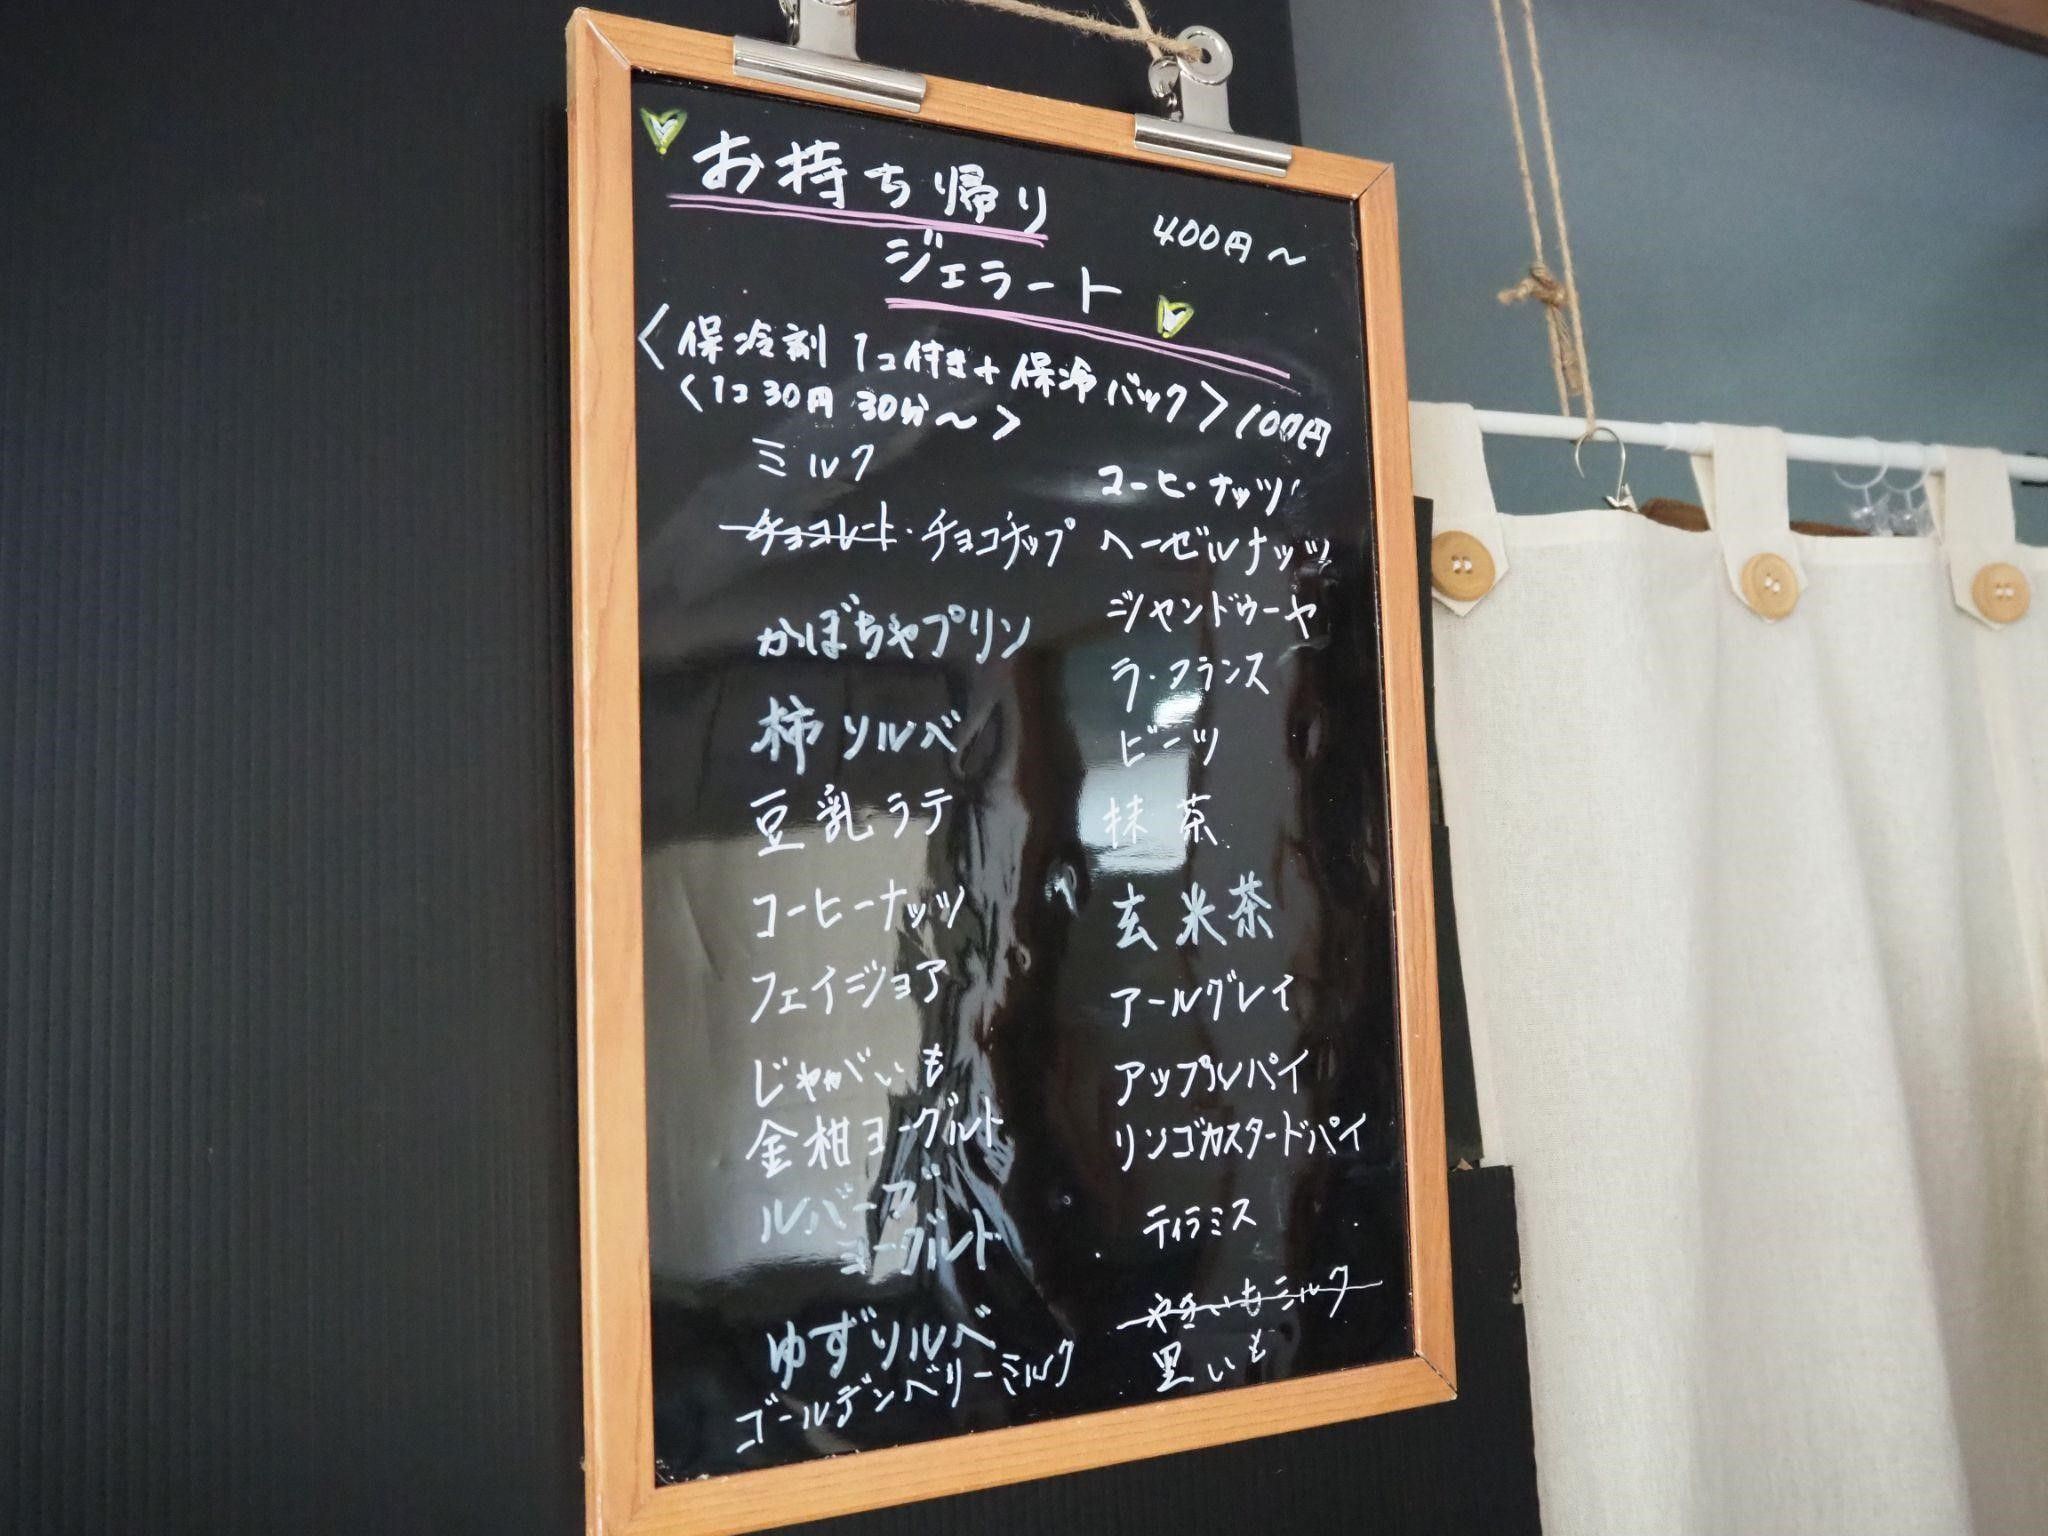 お持ち帰り
400円～
ジェラート
〈保冷剤 1コ付き+保冷バック〉100円
〈1コ30円 30分～〉
ミルク
チョコレート・チョコチップ
かぼちゃプリン
柿ソルベ
豆乳ラテ
コーヒーナッツ
フェイジョア
じゃがいも
金柑ヨーグルト
ルバーブ
ヨーグルト
ゆずソルベ
ゴールデンベリーミルク
コーヒ・ナッツ
ヘーゼルナッツ
ジャンドゥーヤ
ラ・フランス
ビーツ
抹茶
玄米茶
アールグレイ
アップルパイ
リンゴカスタードパイ
ティラミス
やきいもミルク
里いも